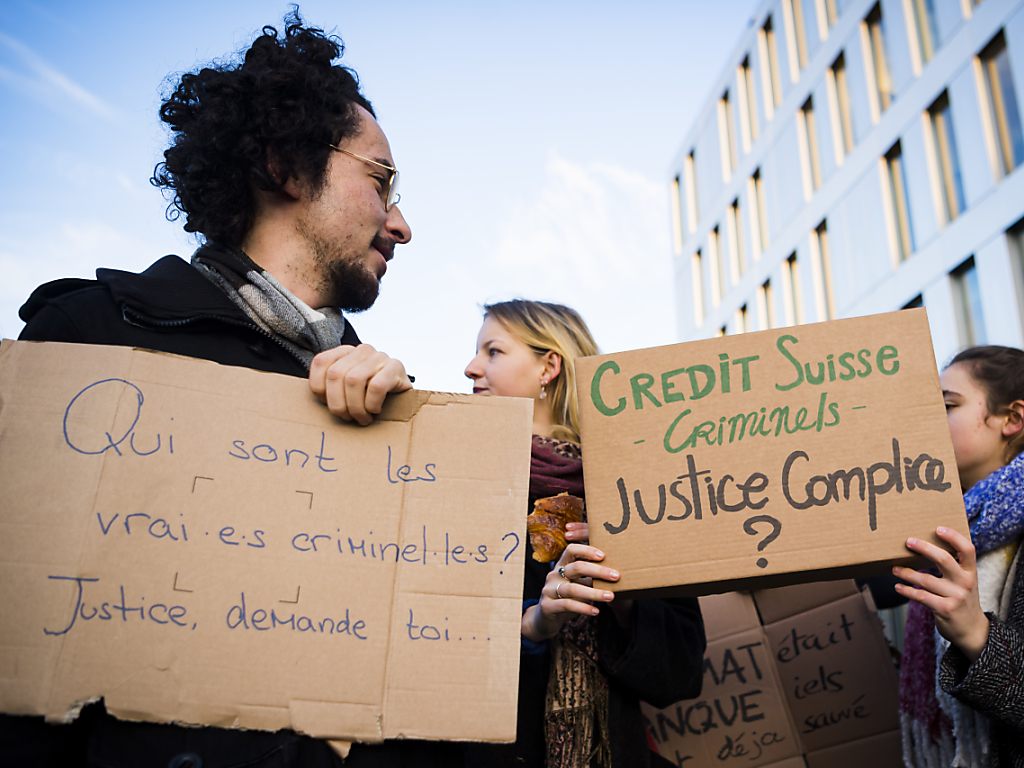 Qui sont les
vrai·e·s criminel·le·s ?
Justice, demande toi...
CREDIT Suisse
- Criminels -
Justice Complice
?
MAT
ANQUE
déjà
était
iels
sauvé